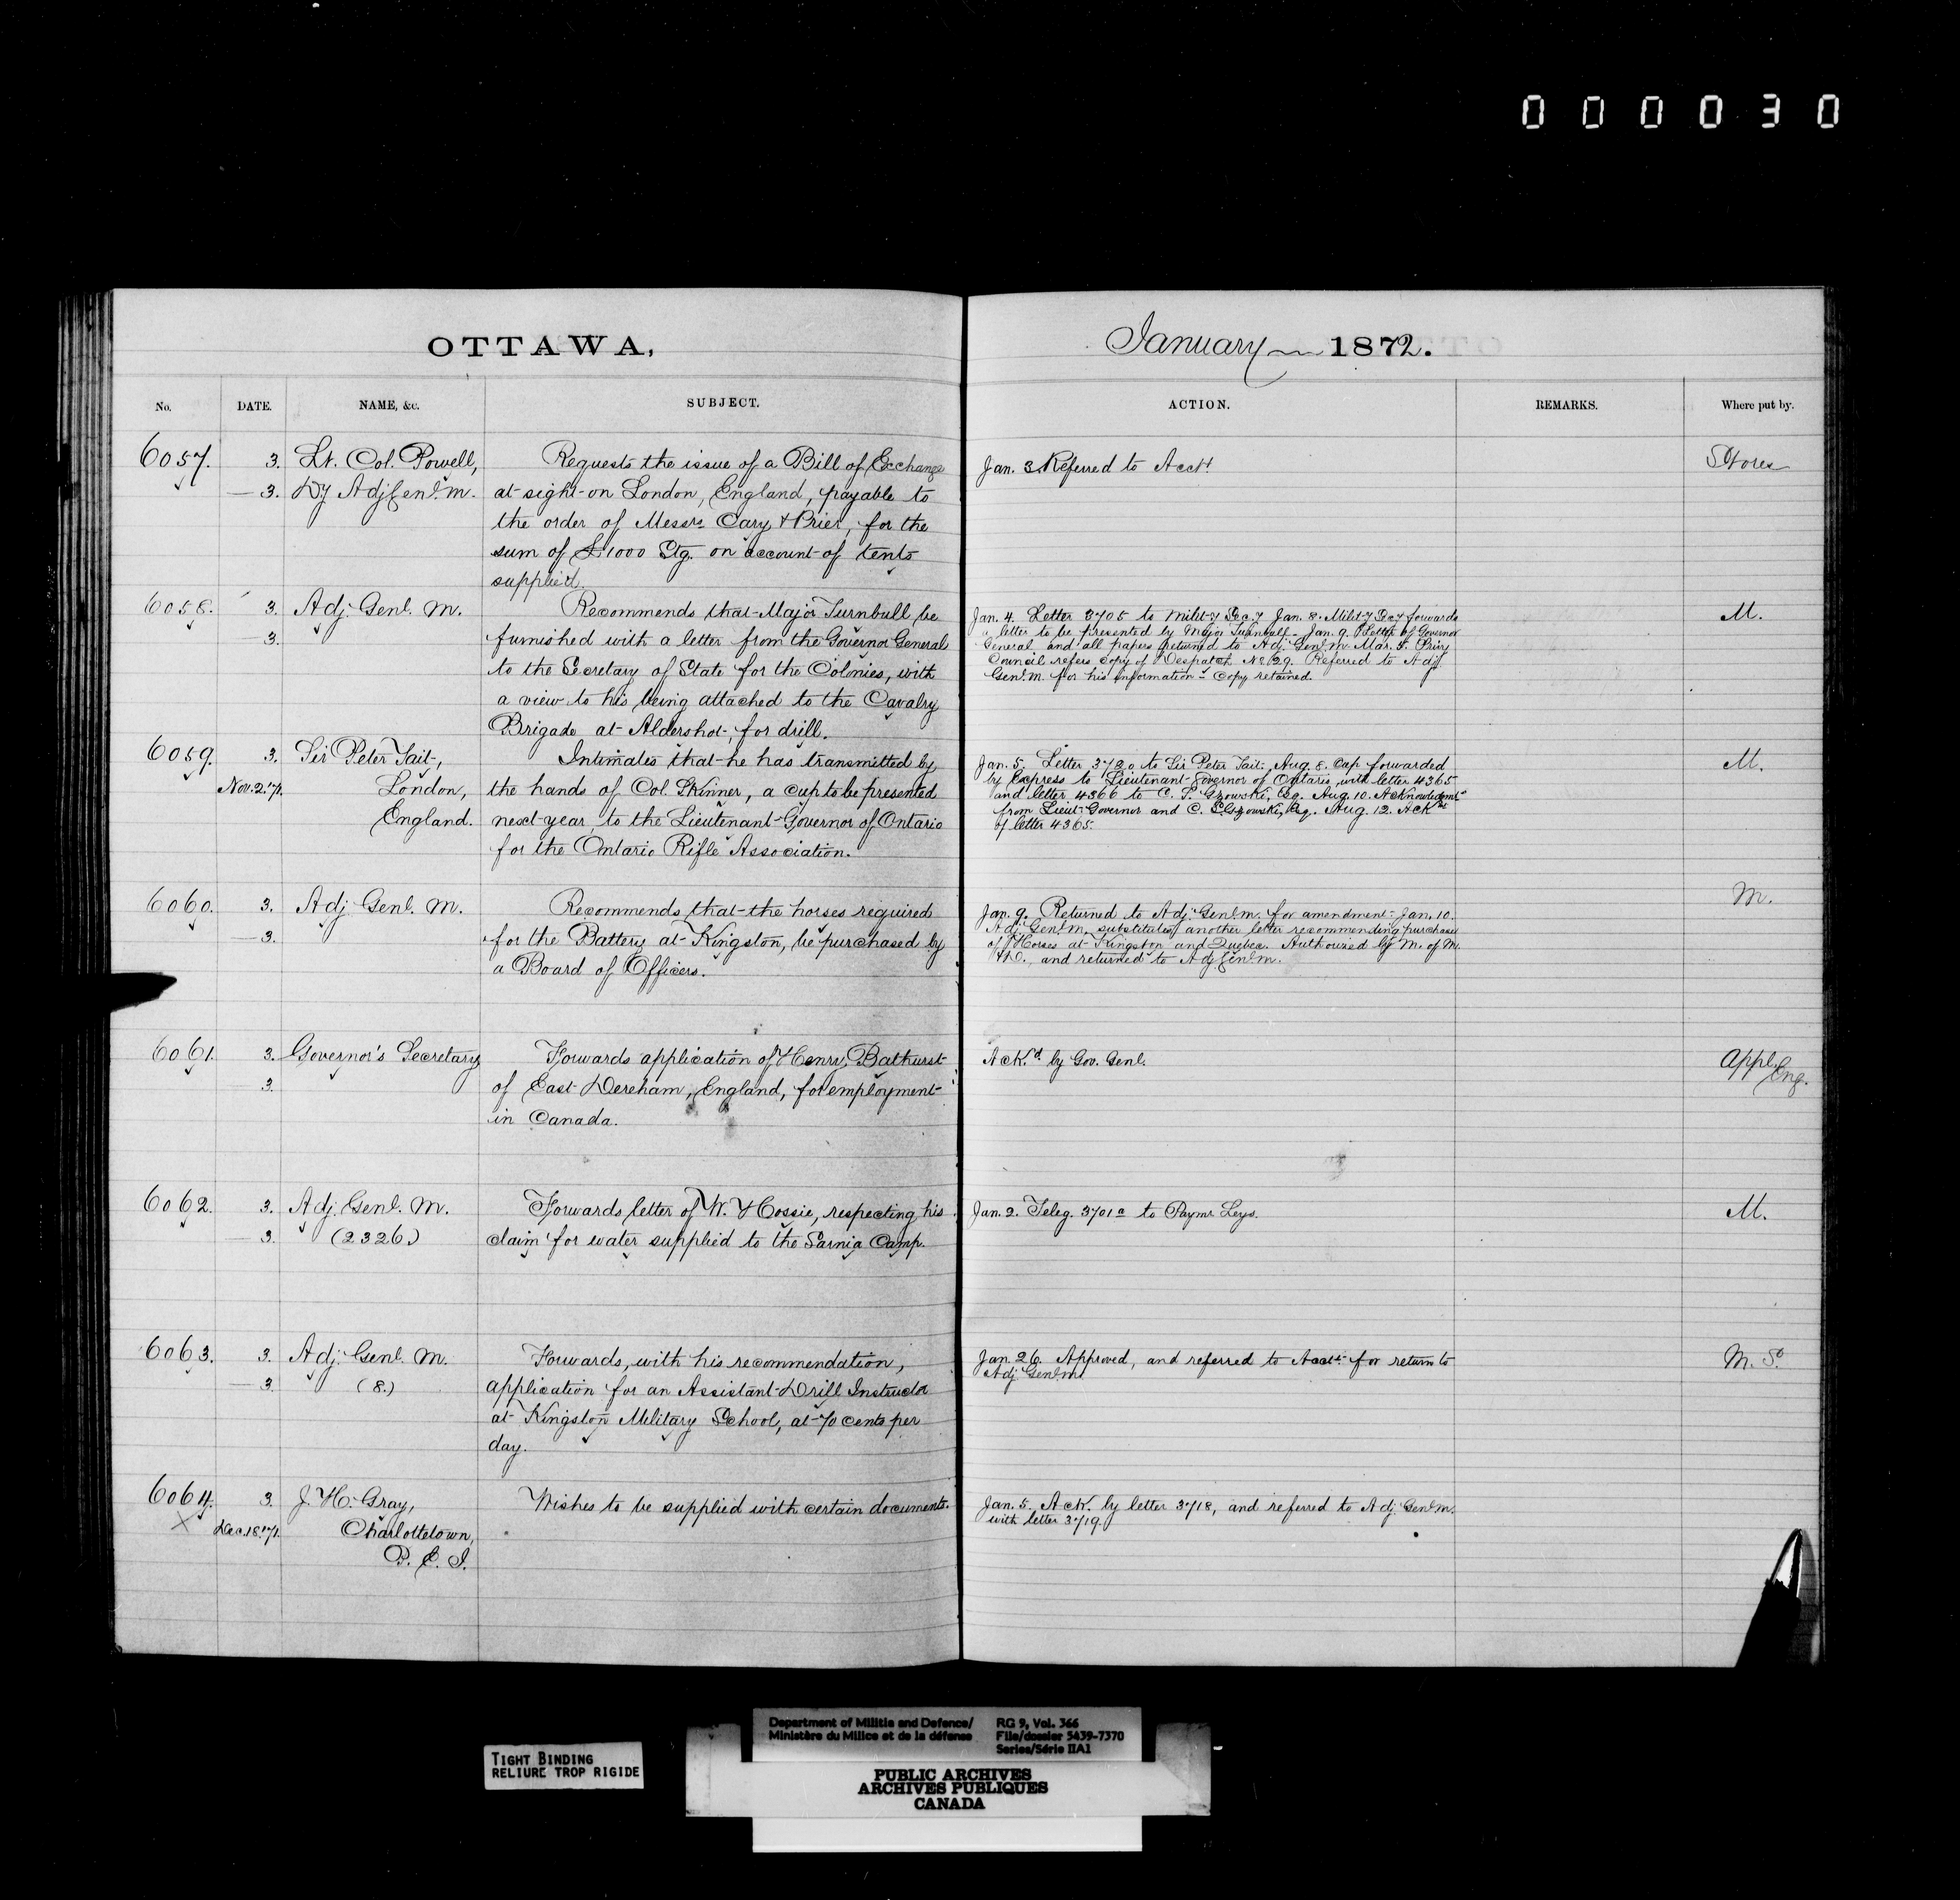 000030
OTTAWA,
January 1872.
No. DATE. NAME, &c. SUBJECT. ACTION. REMARKS. Where put by.
6057. 3. Lt. Col. Powell,
— 3. Dy Adj Genl. M.
Requests the issue of a Bill of Exchange
at sight on London, England, payable to
the order of Messrs Cary & Prier, for the
sum of £1000 Stg. on account of tents
supplied.
Jan. 3. Referred to Acct.
Stores
6058. 3. Adj. Genl. M.
— 3.
Recommends that Major Turnbull be
furnished with a letter from the Governor General
to the Secretary of State for the Colonies, with
a view to his being attached to the Cavalry
Brigade at Aldershot, for drill.
Jan. 4. Letter 3705 to Milit-y Sec.y Jan. 8. Milit-y Sec-y forwards
a letter to be presented by Major Turnbull. Jan. 9. Letter of Governor
General and all papers returned to Adj. Genl. M. Mar. 5. Privy
Council refers copy of Despatch No. 29. Referred to Adj.
Genl. M. for his information - Copy retained.
M.
6059. 3. Sir Peter Tait,
Nov. 2. '71. London,
England.
Intimates that he has transmitted by
the hands of Col. Skinner, a cup to be presented
next year to the Lieutenant-Governor of Ontario
for the Ontario Rifle Association.
Jan. 5. Letter 3720 to Sir Peter Tait. Aug. 8. Cup forwarded
by Express to Lieutenant-Governor of Ontario, with letter 4365
and letter 4366 to C. S. Gzowski, Esq. Aug. 10. Acknowledgmt
from Lieut-Governor and C. S. Gzowski, Esq. Aug. 12. Ack
of letter 4365.
M.
6060. 3. Adj. Genl. M.
— 3.
Recommends that the horses required
for the Battery at Kingston, be purchased by
a Board of Officers.
Jan. 9. Returned to Adj. Genl. M. for amendment. Jan. 10.
Adj. Genl. M. substitutes another letter recommending purchase
of Horses at Kingston and Quebec. Authorized by M. of M.
& D., and returned to Adj. Genl. M.
M.
6061. 3. Governor's Secretary
3.
Forwards application of Henry Bathurst
of East Dereham, England, for employment
in Canada.
Ack.d by Gov. Genl.
Appl. Eng.
6062. 3. Adj. Genl. M.
— 3. (2326.)
Forwards letter of W. H. Cossie, respecting his
claim for water supplied to the Sarnia Camp.
Jan. 2. Teleg. 3701a to Paymr Leys.
M.
6063. 3. Adj. Genl. M.
— 3. (8.)
Forwards, with his recommendation,
application for an Assistant-Drill Instructor
at Kingston Military School, at 70 cents per
day.
Jan. 26. Approved, and referred to Acct. for return to
Adj. Genl. M.
M. S.
6064. 3. J. H. Gray,
X Dec. 18. '71. Charlottetown,
P. E. I.
Wishes to be supplied with certain documents.
Jan. 5. Ack. by letter 3718, and referred to Adj. Genl. M.
with letter 3719.
TIGHT BINDING
RELIURE TROP RIGIDE
Department of Militia and Defence/
Ministère du Milice et de la défense
RG 9, Vol. 366
File/dossier 5439-7370
Series/Série IIA1
PUBLIC ARCHIVES
ARCHIVES PUBLIQUES
CANADA